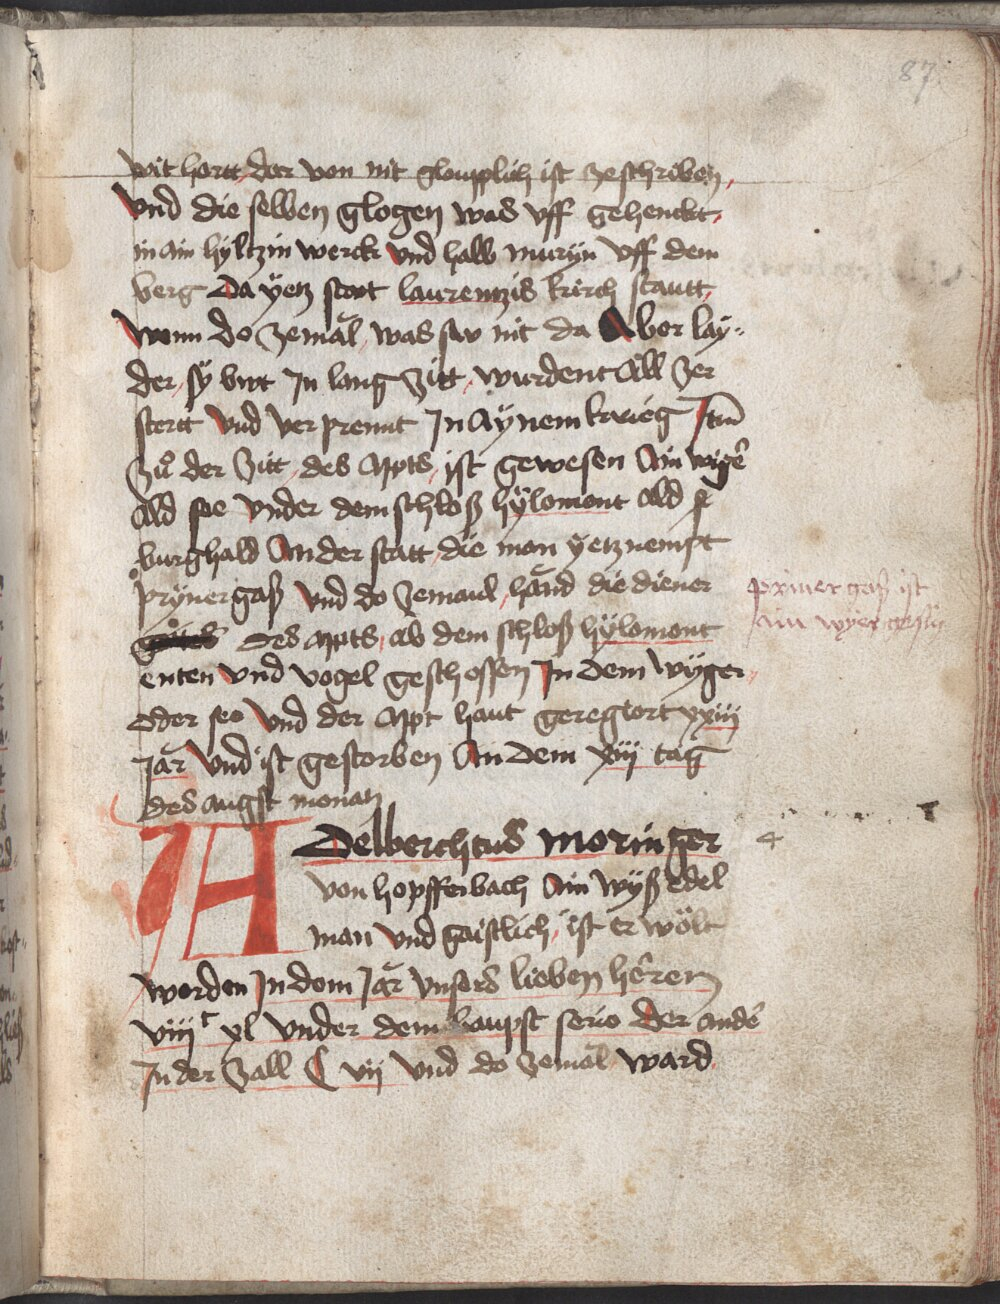 87
wit hortt der von nit glouplich ist ze schriben
Vnd die selben glogen was vff gehenckt
in ain hyltzin werck vnd halb muryn vff dem
berg Da yetz stat laurentzis kirch stautt
wenn do zemal was sy nit da Aber lay-
der sy bvt In lang zitt wurdent all zer
stertt Vnd ver prennt In aynem krieg Itm̄
Zů der Zitt des Appts ist gewesen Ain wigē
Ald see vnder dem schloß hylomont ald
burghald An der statt die man yetz nempt
prÿner gaß Vnd do zemaul hand die diener
des appts ab dem schloß hylomont
enten Vnd vogel geschossen In dem wyger
Oder see Vnd der Appt haut geregiort xxiij
Jar Vnd ist gestorben An dem xiij tag
des augst monatz
prÿner gaß ist
ain wyer gesin
ADelberchtus moringer
von hopffenbach Ain wyß edel
man vnd gaistlich ist er wölt
worden In dem Jar Vnsers lieben hēren
viijᶜ xl Vnder dem baupst serio Der andē
In der Zall C vij Vnd do zemal ward